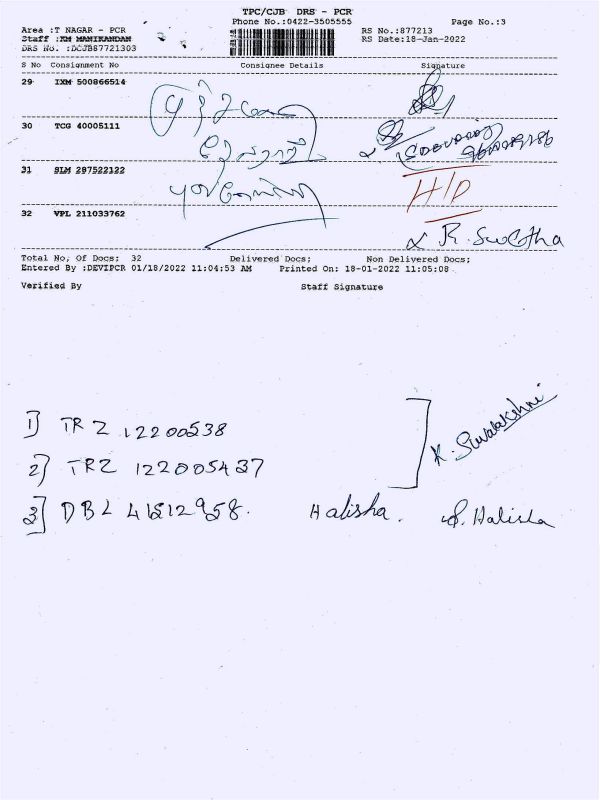 TPC/CJB DRS - PCR
Phone No.:0422-3505555 Page No.:3
Area :T NAGAR - PCR RS No.:877213
Staff :KM MANIKANDAN RS Date:18-Jan-2022
DRS No. :DCJB87721303
S No Consignment No Consignee Details Signature
29 IXM 500866514
30 TCG 40005111
31 SLM 297522122
H/D
32 VPL 211033762
R. Swetha
Total No. Of Docs: 32 Delivered Docs: Non Delivered Docs:
Entered By :DEVIPCR 01/18/2022 11:04:53 AM Printed On: 18-01-2022 11:05:08
Verified By Staff Signature
1] TRZ 12200538
2] TRZ 122005437
3] DBL 41512958. Halisha. S. Halisha